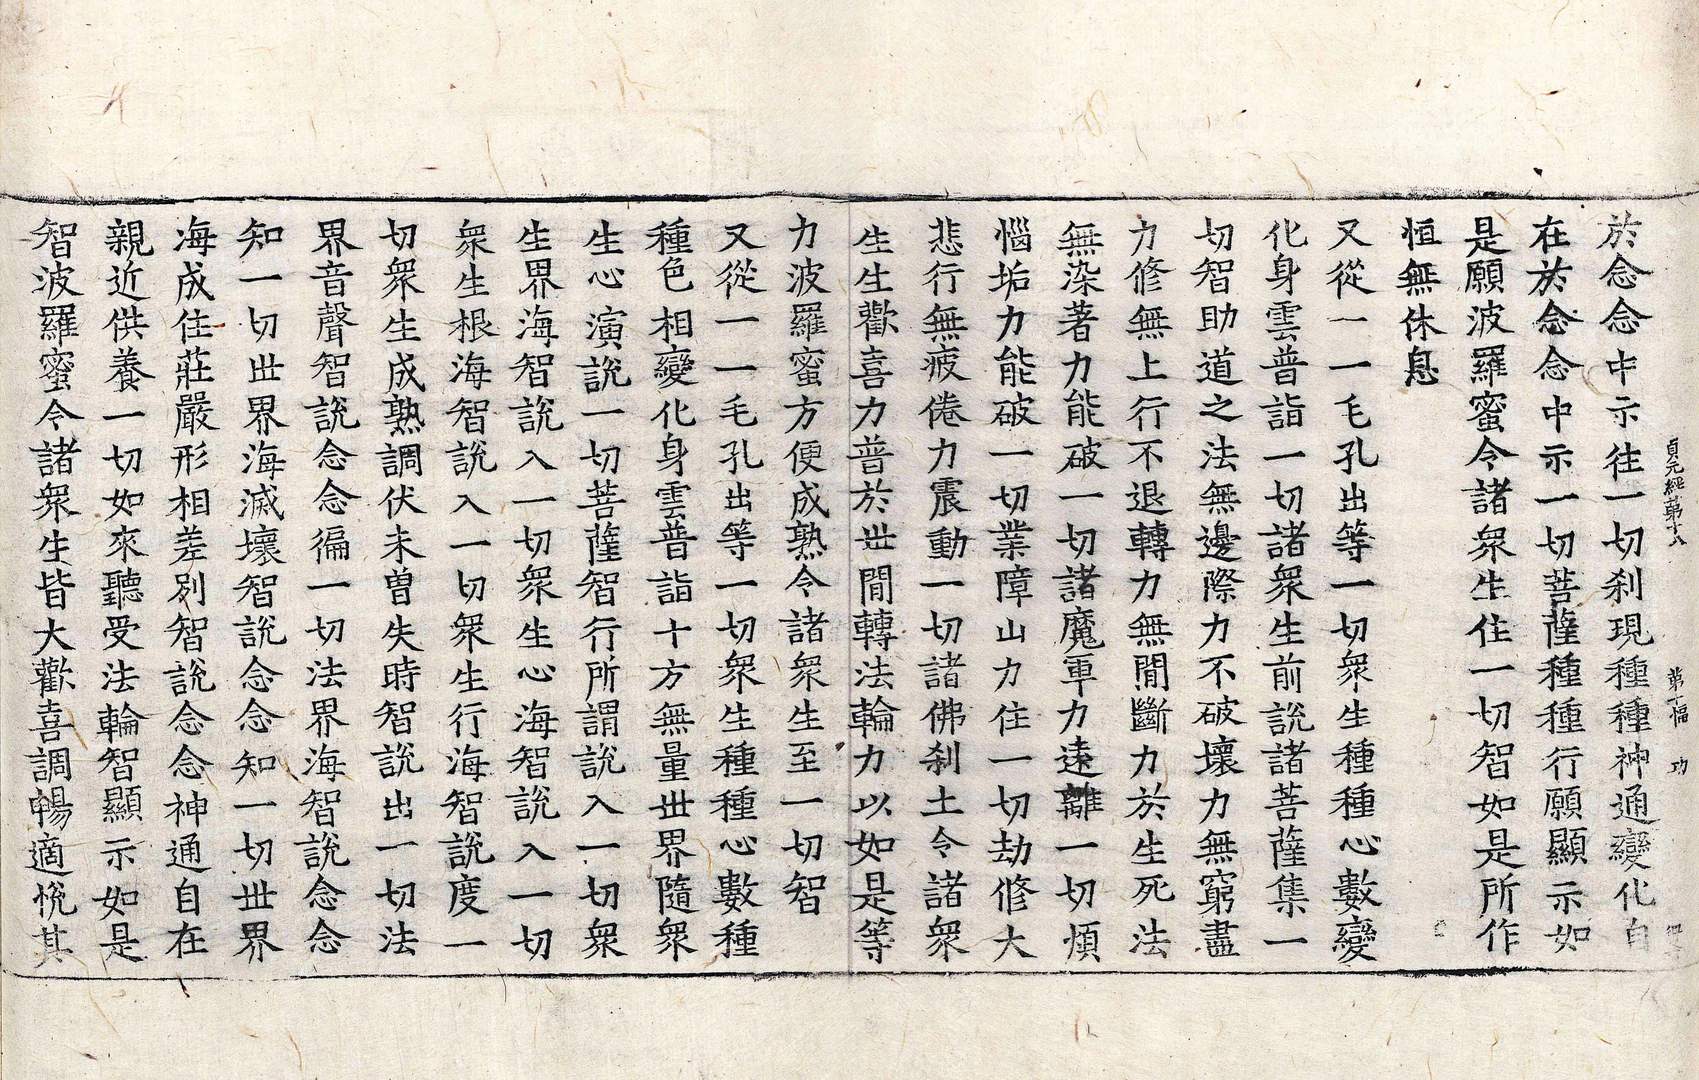 貞元經第十八 第十幅 功
於念念中示往一切刹現種種神通變化自
在於念念中示一切菩薩種種行願顯示如
是願波羅蜜令諸衆生住一切智如是所作
恒無休息
又從一一毛孔出等一切衆生種種心數變
化身雲普詣一切諸衆生前說諸菩薩集一
切智助道之法無邊際力不破壞力無窮盡
力修無上行不退轉力無間斷力於生死法
無染著力能破一切諸魔軍力遠離一切煩
惱垢力能破一切業障山力住一切劫修大
悲行無疲倦力震動一切諸佛刹土令諸衆
生生歡喜力普於世間轉法輪力以如是等
力波羅蜜方便成熟令諸衆生至一切智
又從一一毛孔出等一切衆生種種心數種
種色相變化身雲普詣十方無量世界隨衆
生心演說一切菩薩智行所謂說入一切衆
生界海智說入一切衆生心海智說入一切
衆生根海智說入一切衆生行海智說度一
切衆生成熟調伏未曽失時智說出一切法
界音聲智說念念徧一切法界海智說念念
知一切世界海滅壞智說念念知一切世界
海成住莊嚴形相差別智說念念神通自在
親近供養一切如來聽受法輪智顯示如是
智波羅蜜令諸衆生皆大歡喜調暢適悅其